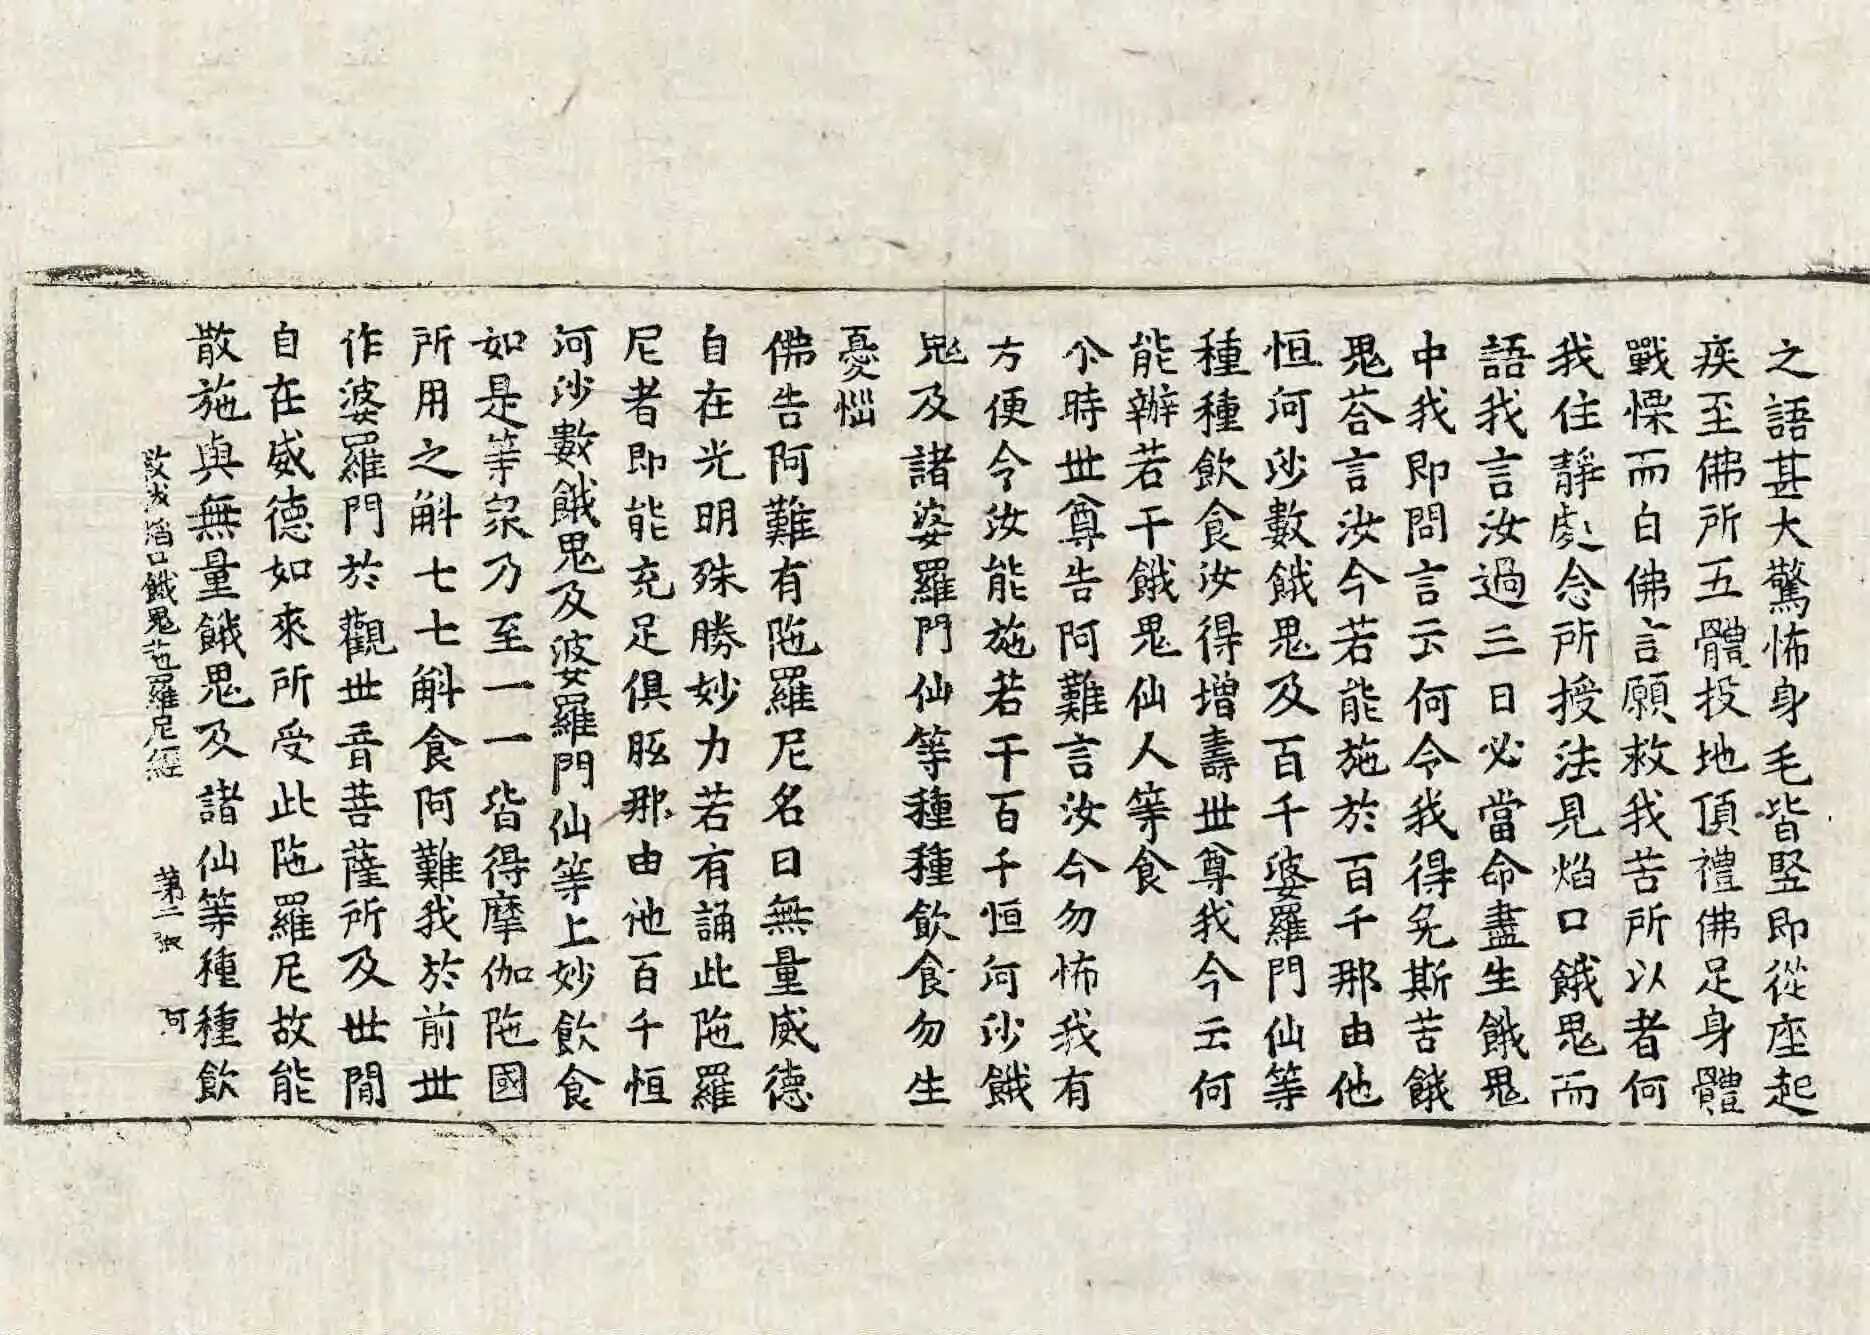 之語甚大驚怖身毛皆竪即從座起
疾至佛所五體投地頂禮佛足身體
戰慄而白佛言願救我苦所以者何
我住靜處念所授法見焰口餓鬼而
語我言汝過三日必當命盡生餓鬼
中我即問言云何令我得免斯苦餓
鬼荅言汝今若能施於百千那由他
恒河沙數餓鬼及百千婆羅門仙等
種種飲食汝得增壽世尊我今云何
能辦若干餓鬼仙人等食
尒時世尊告阿難言汝今勿怖我有
方便令汝能施若干百千恒河沙餓
鬼及諸婆羅門仙等種種飲食勿生
憂惱
佛告阿難有陁羅尼名曰無量威德
自在光明殊勝妙力若有誦此陁羅
尼者即能充足俱胝那由他百千恒
河沙數餓鬼及婆羅門仙等上妙飲食
如是等衆乃至一一皆得摩伽陁國
所用之斛七七斛食阿難我於前世
作婆羅門於觀世音菩薩所及世間
自在威德如來所受此陁羅尼故能
散施與無量餓鬼及諸仙等種種飲
救拔焰口餓鬼陁羅尼經 第二張 阿